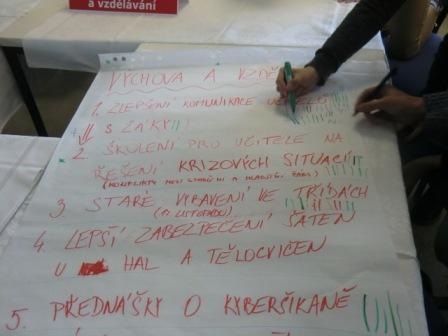 a vzdělávání
VÝCHOVA A
1. ZLEPŠENÍ KOMUNIKACE
S ŽÁKY
2. ŠKOLENÍ PRO UČITELE NA
ŘEŠENÍ KRIZOVÝCH SITUACÍ
(KONFLIKTY MEZI STARŠÍMI A MLADŠÍMI ŽÁKY)
3. STARÉ VYBAVENÍ VE TŘÍDÁCH
4. LEPŠÍ ZABEZPEČENÍ ŠATEN
U HAL A TĚLOCVIČEN
5. PŘEDNÁŠKY O KYBERŠIKANĚ